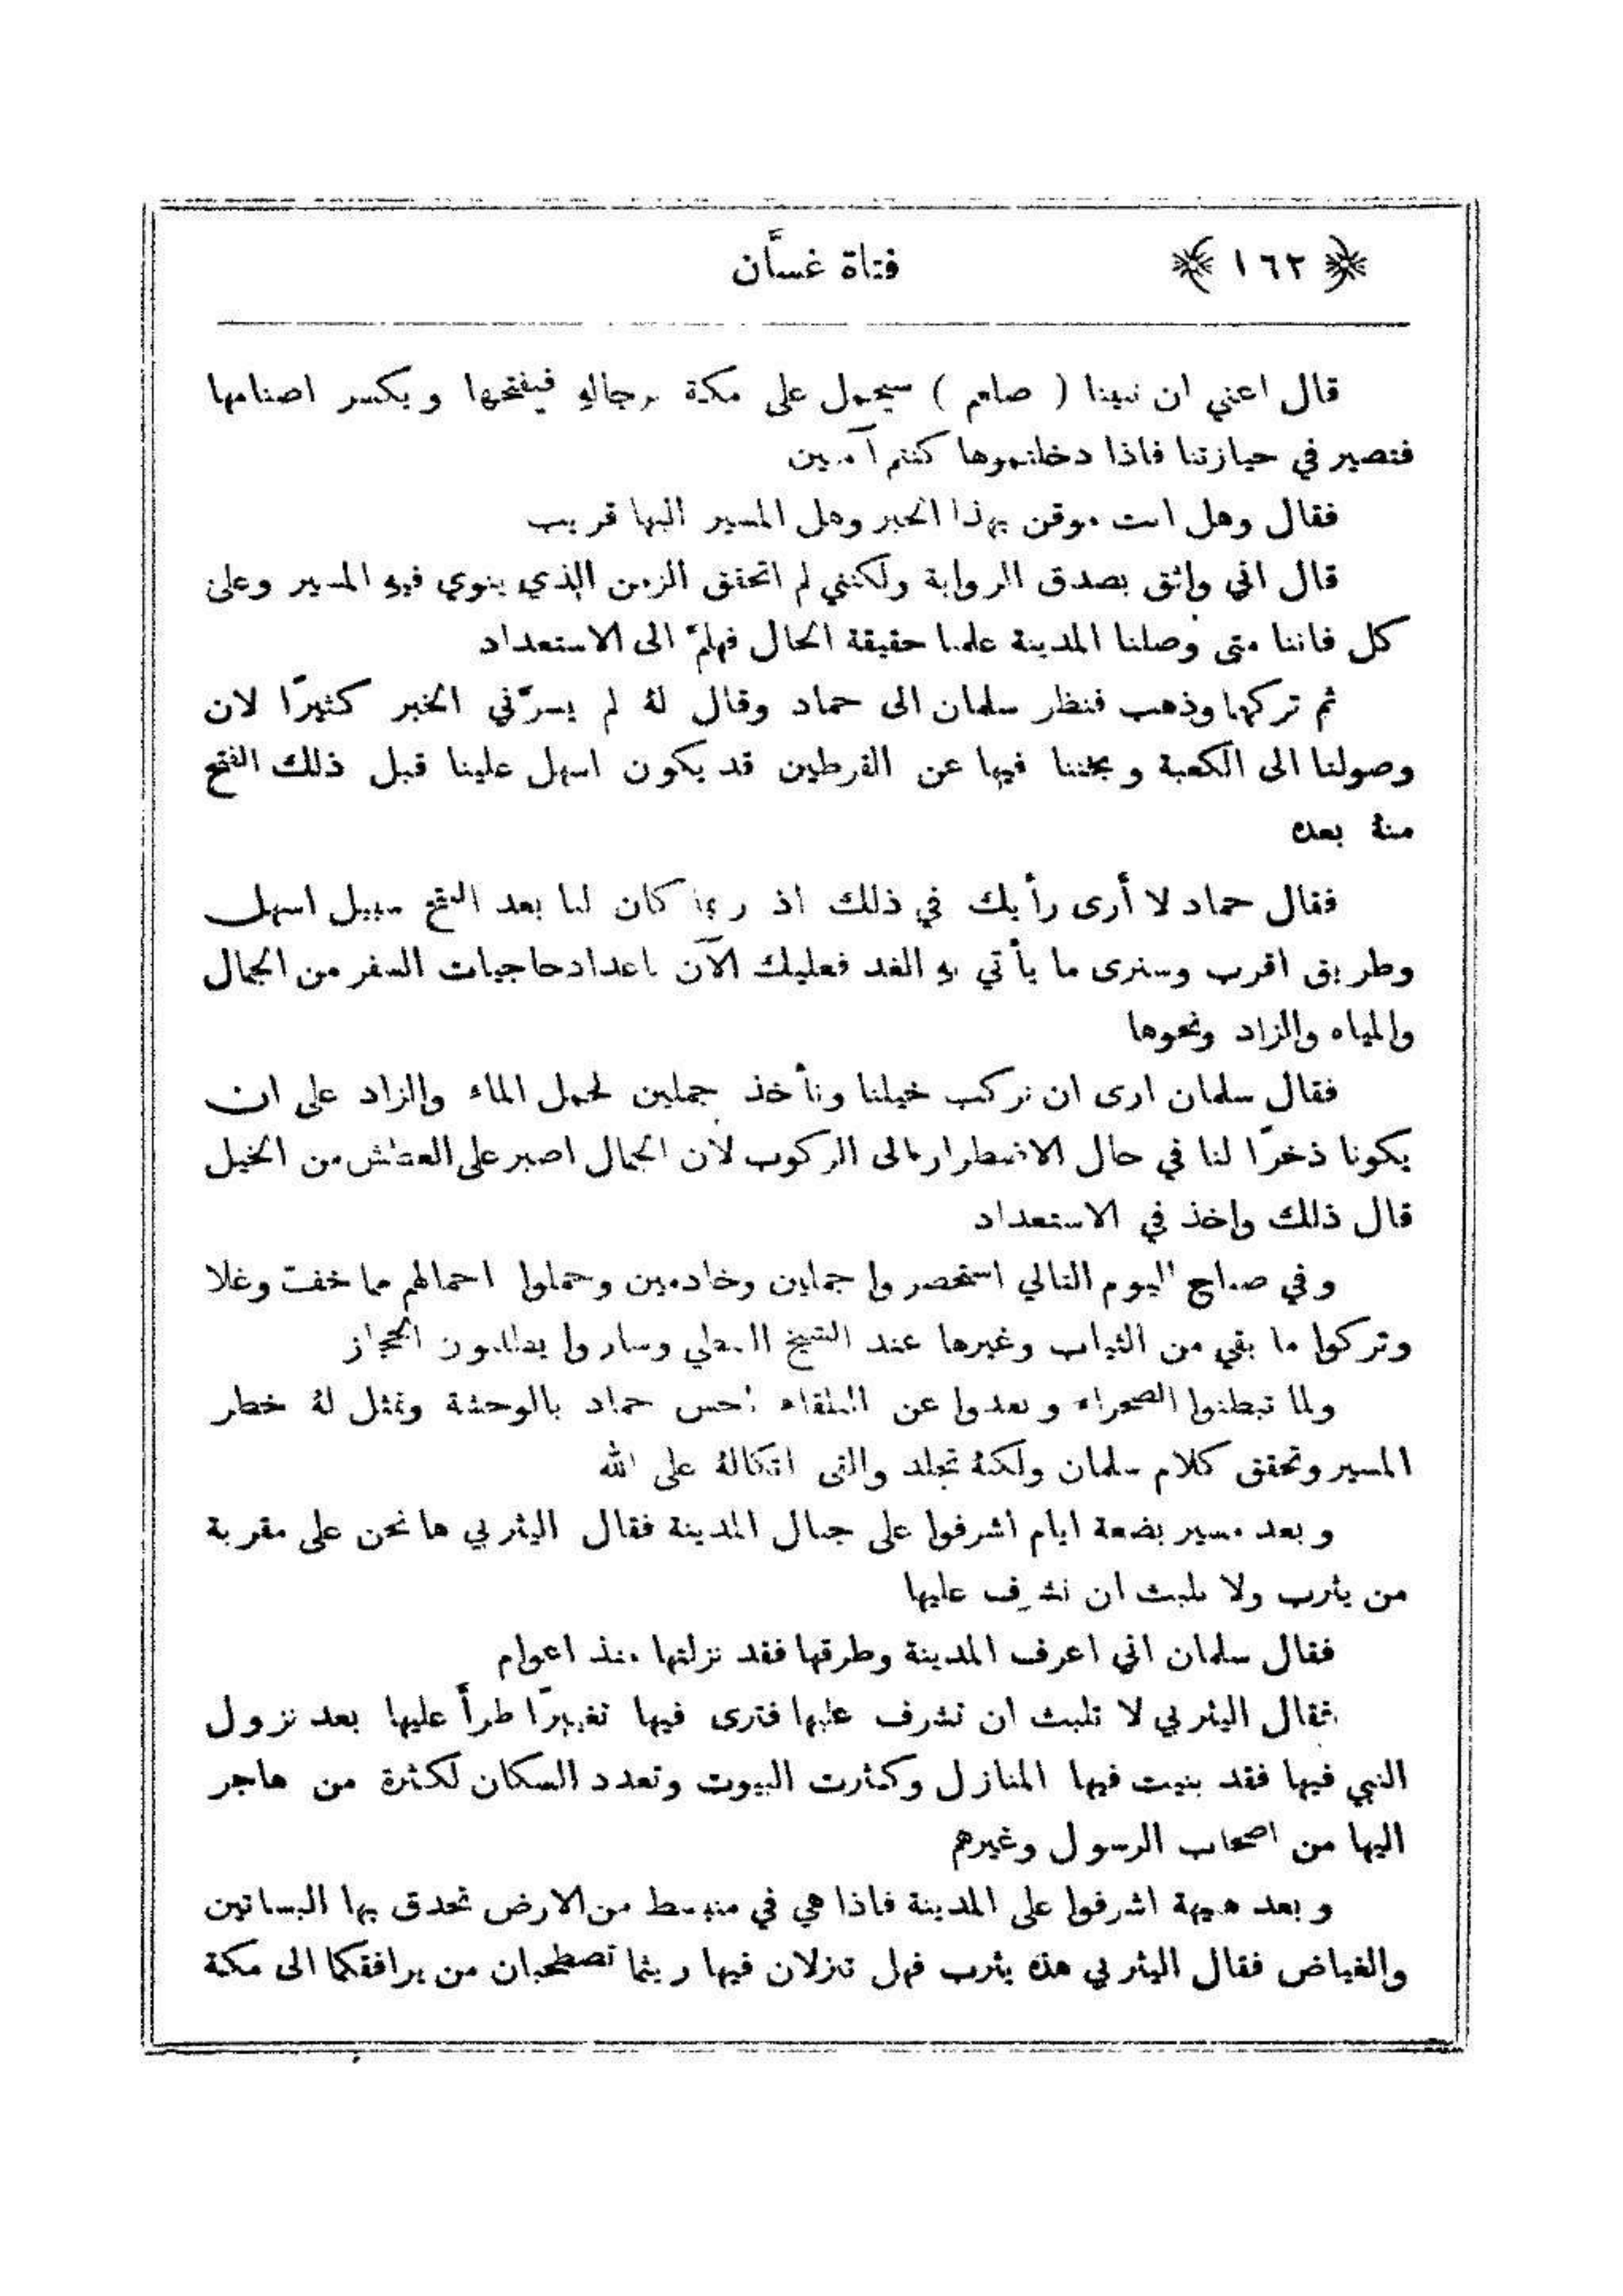 ﴿ ١٦٢ ﴾ فتاة غسَّان
قال اعني ان نبينا ( صلعم ) سيحمل على مكة برجالهِ فيفتحها ويكسر اصنامها
فتصير في حيازتنا فاذا دخلتموها كنتم آمنين
فقال وهل انت موقن بهذا الخبر وهل المسير اليها قريب
قال اني واثق بصدق الرواية ولكنني لم اتحقق الزمن الذي ينوي فيهِ المسير وعلى
كل فاننا متى وصلنا المدينة علمنا حقيقة الحال فهلمَّ الى الاستعداد
ثم تركهما وذهب فنظر سلمان الى حماد وقال لهُ لم يسرَّني الخبر كثيرًا لان
وصولنا الى الكعبة وبحثنا فيها عن القرطين قد يكون اسهل علينا قبل ذلك الفتح
منهُ بعده
فقال حماد لا أرى رأيك في ذلك اذ ربما كان لنا بعد الفتح سبيل اسهل
وطريق اقرب وسنرى ما يأتي بهِ الغد فعليك الآن باعداد حاجيات السفر من الجمال
والمياه والزاد ونحوها
فقال سلمان ارى ان نركب خيلنا ونأخذ جملين لحمل الماء والزاد على ان
يكونا ذخرًا لنا في حال الاضطرار الى الركوب لان الجمال اصبر على العطش من الخيل
قال ذلك واخذ في الاستعداد
وفي صباح اليوم التالي استحضروا جملين وخادمين وحملوا احمالهم مما خفت وغلا
وتركوا ما بقي من الثياب وغيرها عند الشيخ النبطي وساروا يطلبون الحجاز
ولما تبطنوا الصحراء وبعدوا عن البلقاء احس حماد بالوحشة وتمثل لهُ خطر
المسير وتحقق كلام سلمان ولكنهُ تجلد والقى اتكالهُ على الله
وبعد مسير بضعة ايام اشرفوا على جبال المدينة فقال اليثربي ها نحن على مقربة
من يثرب ولا نلبث ان نشرف عليها
فقال سلمان اني اعرف المدينة وطرقها فقد نزلتها منذ اعوام
فقال اليثربي لا تلبث ان تشرف عليها فترى فيها تغييرًا طرأَ عليها بعد نزول
النبي فيها فقد بنيت فيها المنازل وكثرت البيوت وتعدد السكان لكثرة من هاجر
اليها من اصحاب الرسول وغيرهم
وبعد هنيهة اشرفوا على المدينة فاذا هي في منبسط من الارض تحدق بها البساتين
والغياض فقال اليثربي هذه يثرب فهل تنزلان فيها ريثما تصطحبان من يرافقكما الى مكة